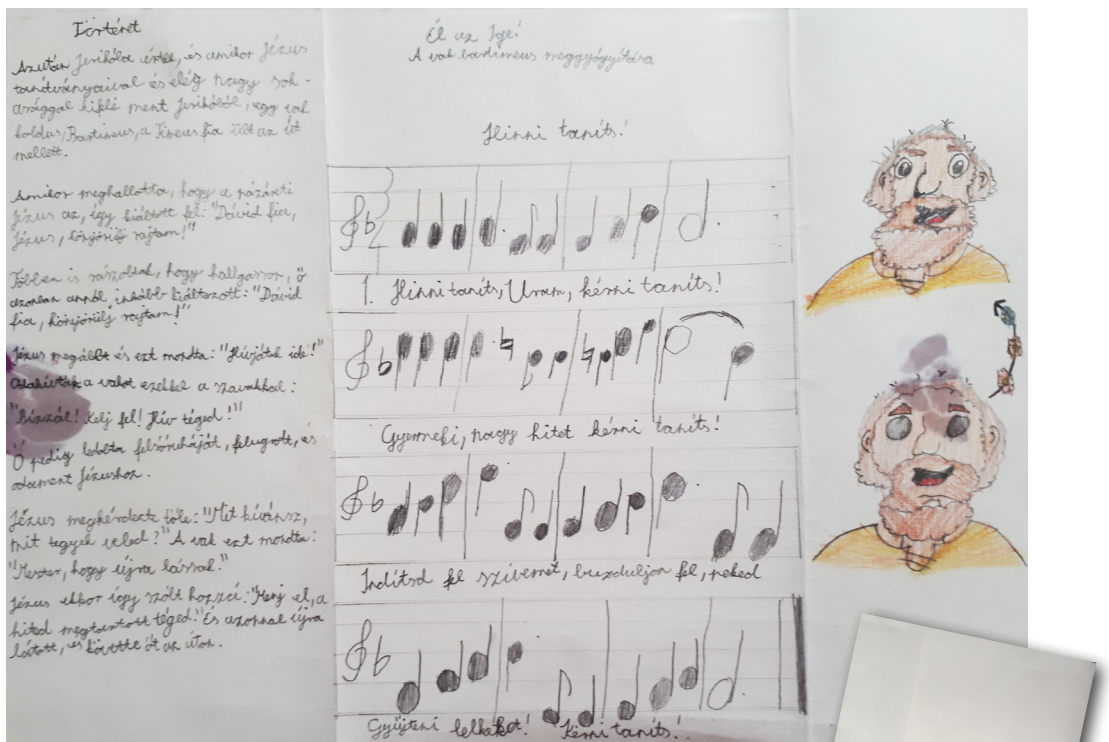 Történet
Azután Jerikóba értek, és amikor Jézus
tanítványaival és elég nagy sok-
asággal kifelé ment Jerikóból, egy vak
koldus, Bartimeus, a Timeus fia ült az út
mellett.
Amikor meghallotta, hogy a názáreti
Jézus az, így kiáltott fel: "Dávid fia,
Jézus, könyörülj rajtam!"
Többen is rászóltak, hogy hallgasson, ő
azonban annál inkább kiáltozott: "Dávid
fia, könyörülj rajtam!"
Jézus megállt és ezt mondta: "Hívjátok ide!"
Odahívták a vakot ezekkel a szavakkal:
"Bízzál! Kelj fel! Hív téged!"
Ő pedig ledobta felsőruháját, felugrott, és
odament Jézushoz.
Jézus megkérdezte tőle: "Mit kívánsz,
mit tegyek veled?" A vak ezt mondta:
"Mester, hogy újra lássak."
Jézus ekkor így szólt hozzá: "Menj el, a
hited megtartott téged." És azonnal újra
látott, és követte őt az úton.
Él az Ige!
A vak bartimeus meggyógyítása
Hinni taníts!
1. Hinni taníts, Uram, kérni taníts!
Gyermeki, nagy hitet kérni taníts!
Indítsd fel szívemet, buzduljon fel, neked
Gyűjteni lelkeket! Kérni taníts!